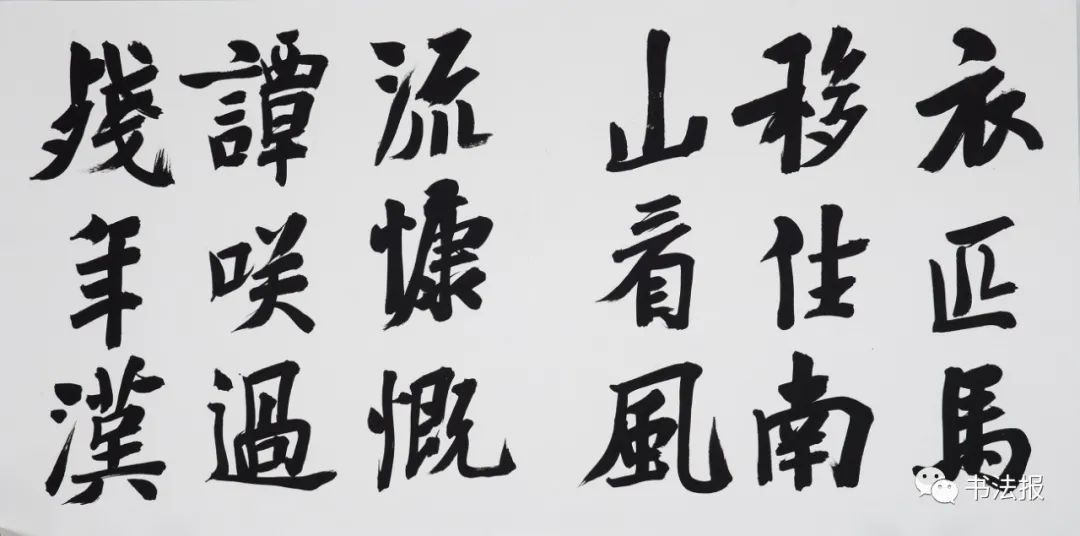 衣匹馬
移住南
山看風
流慷慨
譚咲過
殘年漢
书法报